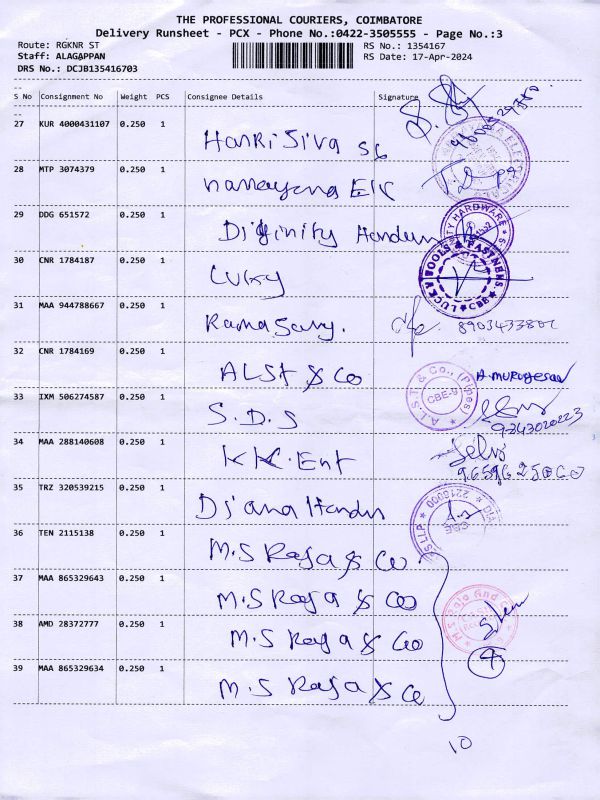 THE PROFESSIONAL COURIERS, COIMBATORE
Delivery Runsheet - PCX - Phone No.:0422-3505555 - Page No.:3
Route: RGKNR ST
RS No.: 1354167
Staff: ALAGAPPAN
RS Date: 17-Apr-2024
DRS No.: DCJB135416703
S No Consignment No Weight PCS Consignee Details Signature
27 KUR 4000431107 0.250 1 Hanri Siva
28 MTP 3074379 0.250 1
29 DDG 651572 0.250 1
30 CNR 1784187 0.250 1 Luky
31 MAA 944788667 0.250 1 Rama Samy.
32 CNR 1784169 0.250 1 ALST & Co
A.L.S.T & Co., (Pipes) CBE-9
33 IXM 506274587 0.250 1 S.D.S
34 MAA 288140608 0.250 1 KK.Ent
35 TRZ 320539215 0.250 1 Diana
36 TEN 2115138 0.250 1 M.S Raja & Co
37 MAA 865329643 0.250 1 M.S Raja & Co
38 AMD 28372777 0.250 1 M.S Raja & Co
4
39 MAA 865329634 0.250 1 M.S Raja & Co
10